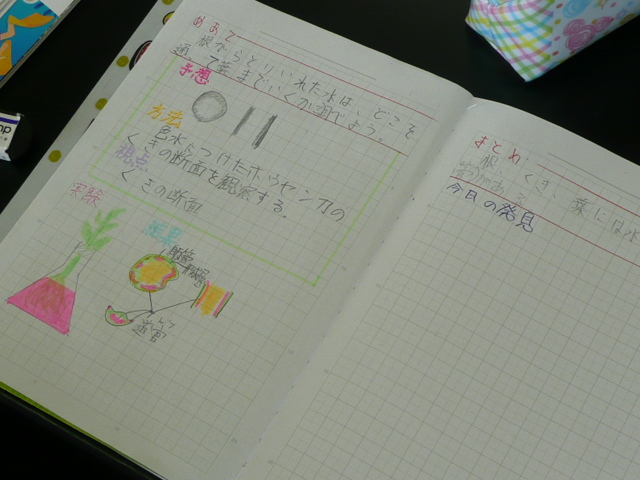 めあて
根からとりいれた水は、どこを
通って葉までいくか調べよう。
予想
方法
色水につけたホウセンカの
くきの断面を観察する。
視点
くきの断面
実験
結果
道管
まとめ
根、くき、葉には水
今日の発見